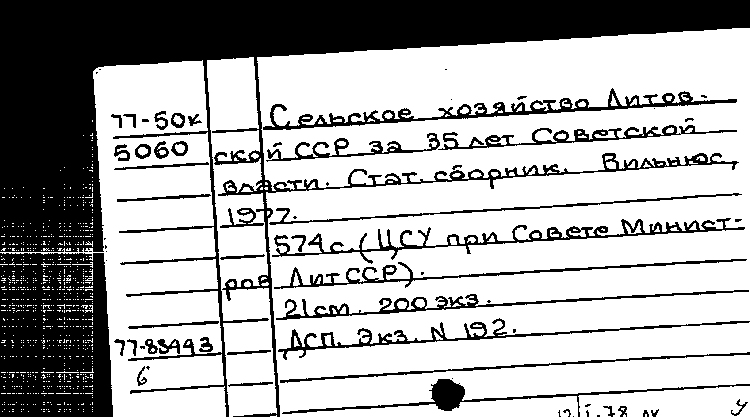 77-50к Сельское хозяйство Литов-
5060 ской ССР за 35 лет Советской
власти. Стат. сборник. Вильнюс,
1977.
574с. (ЦСУ при Совете Минист-
ров ЛитССР).
21см. 200 экз.
77-83443 ДСП. Экз. N 192.
6